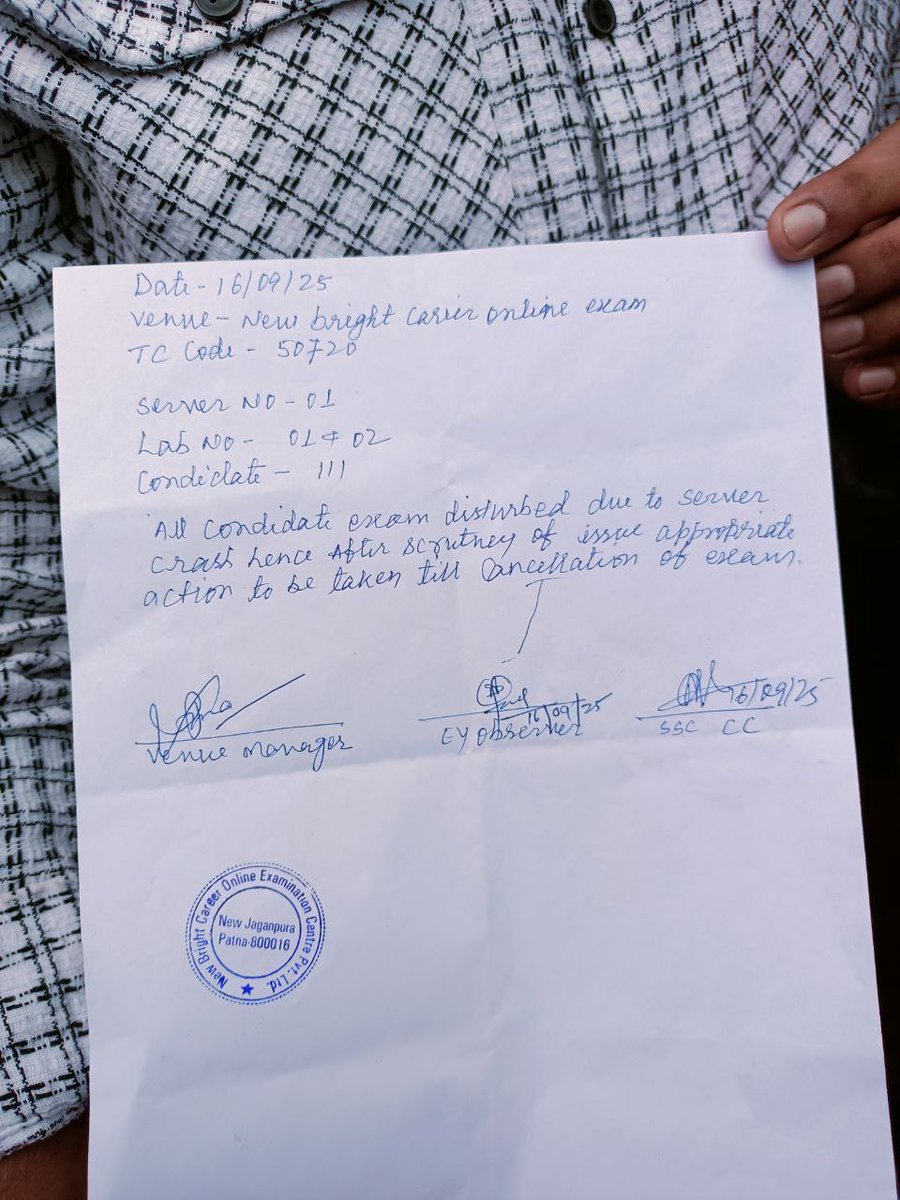 Date - 16/09/25
Venue - New bright carier online exam
TC Code - 50720
Server NO - 01
Lab NO - 01 & 02
Condidate - 111
All condidate exam disturbed due to server
crash hence After scrutney of issue appropriate
action to be taken till Cancellation of exam.
16/09/25
16/09/25
Venue manager
EY Observer
SSC CC
New Bright Career Online Examination Centre Pvt. Ltd.
New Jaganpura
Patna-800016